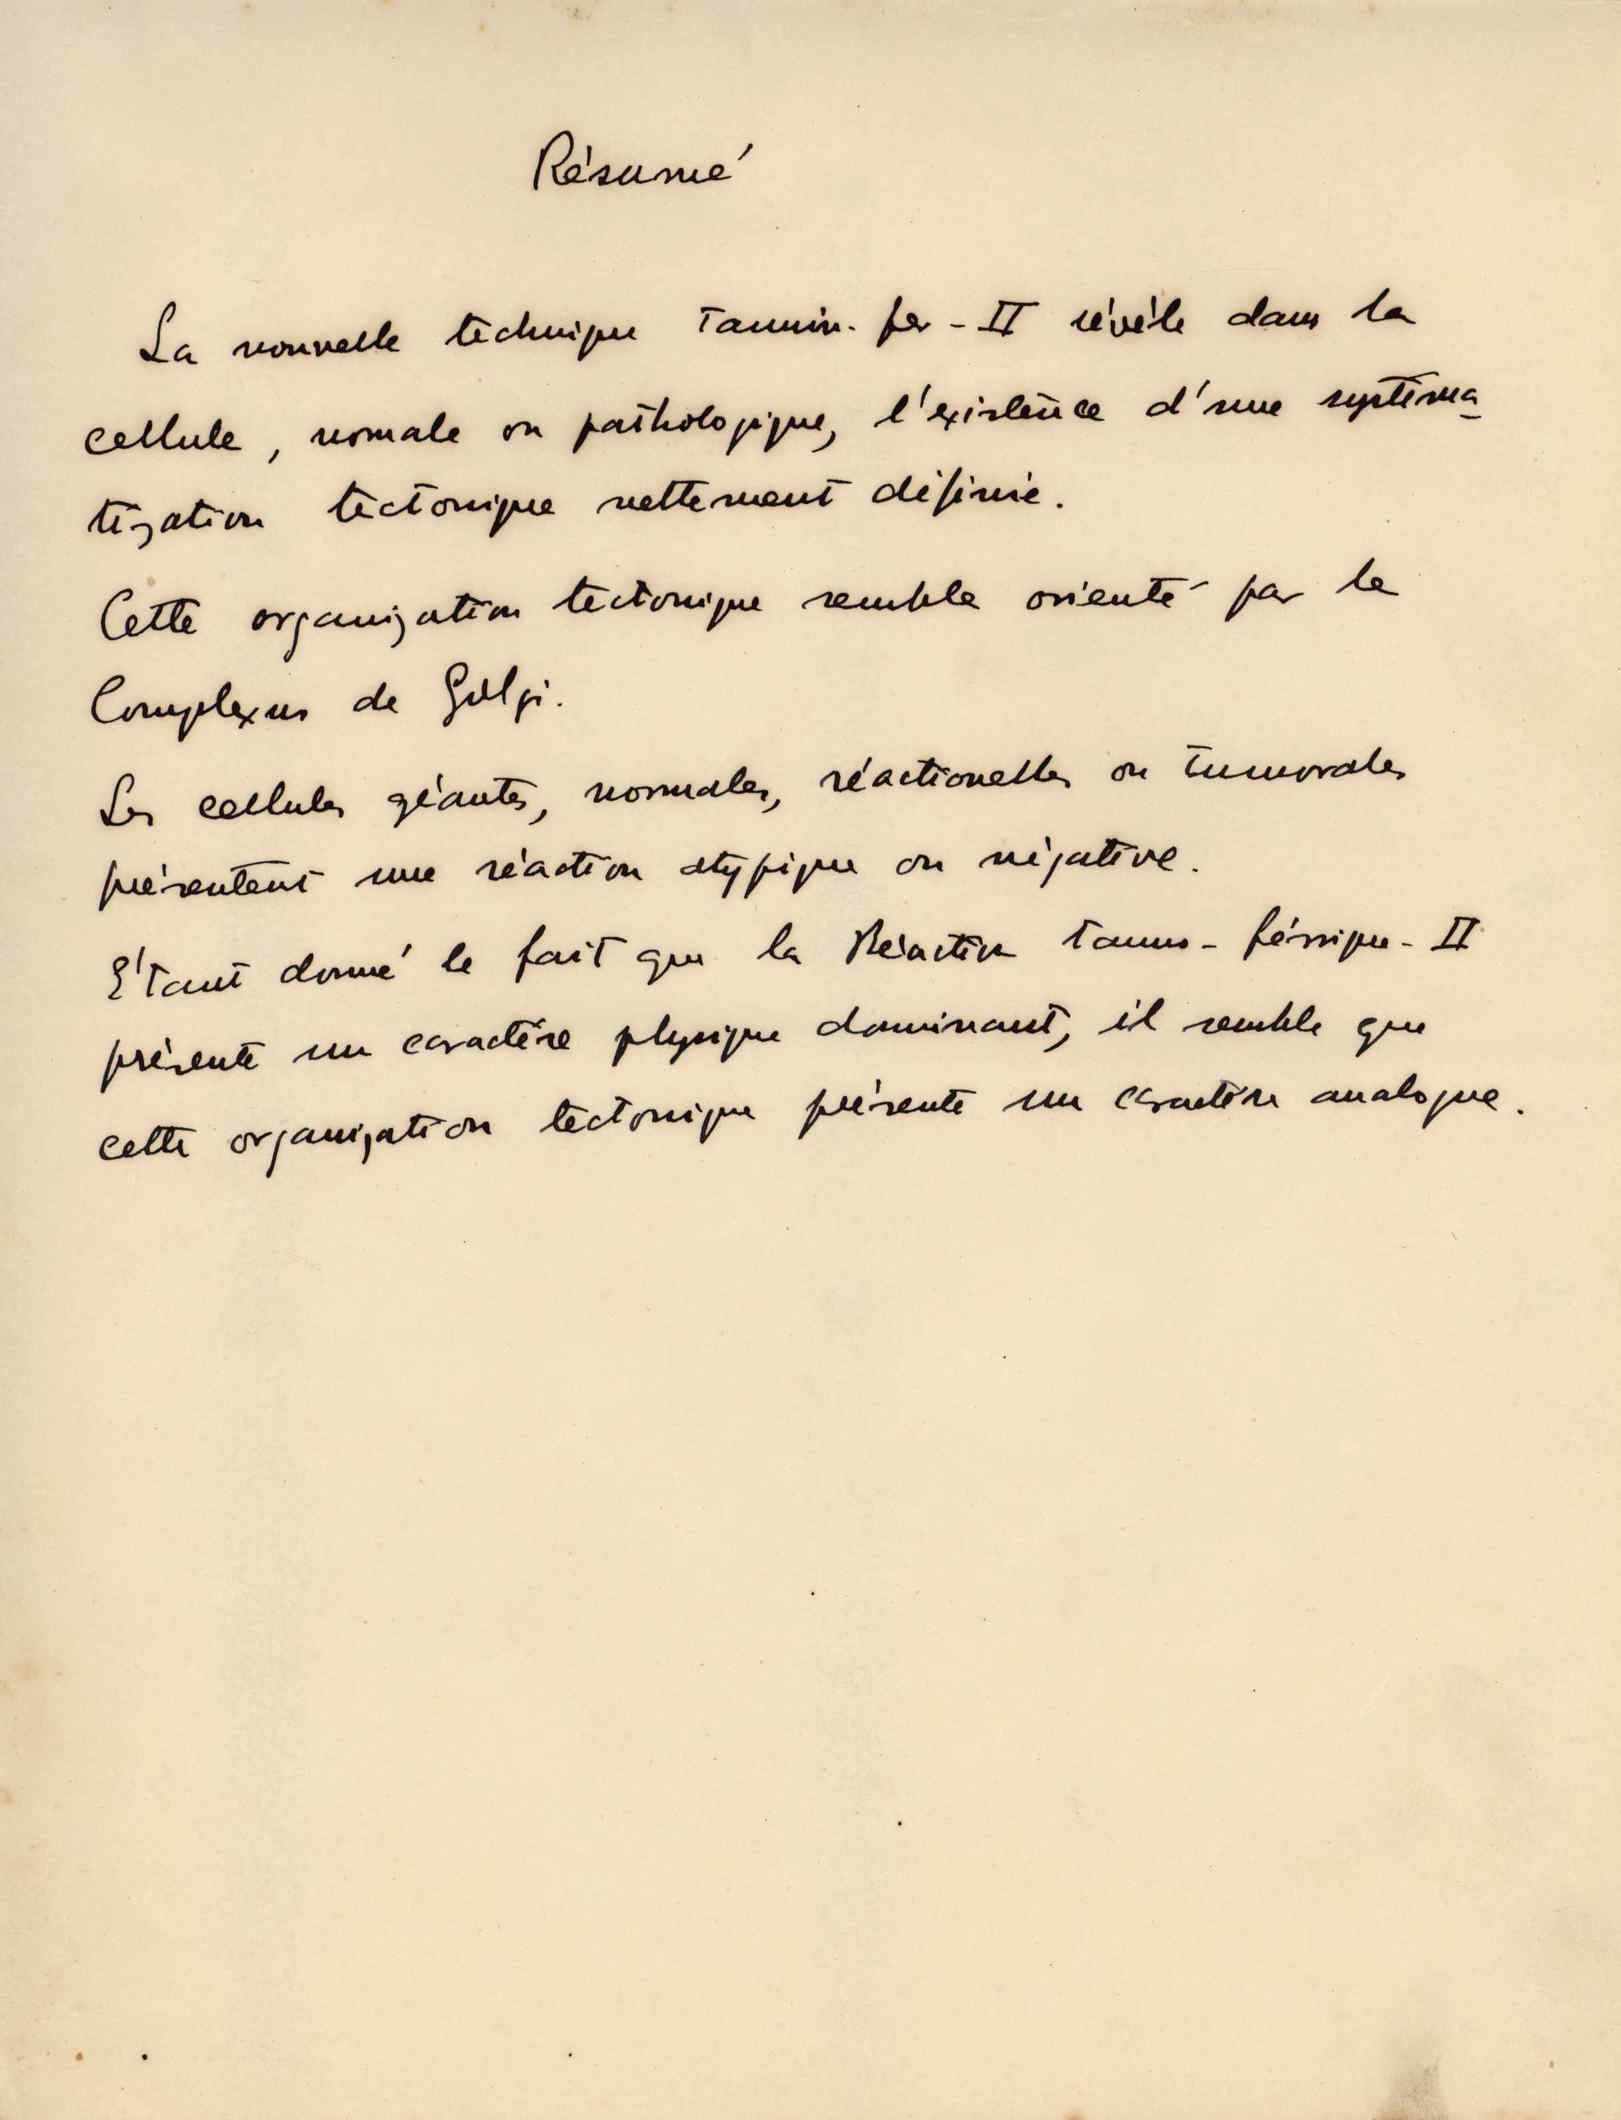 Résumé
La nouvelle technique Tannin-fer-II révèle dans la
cellule, nomale ou pathologique, l'existence d'une systéma
tization tectonique nettement définie.
Cette organization tectonique semble orienté par le
Complexus de Golgi.
Les cellules géantes, normales, réactionelles ou tumorales
présentent une réaction atypique ou négative.
E'tant donné le fait que la Réaction tanno-férrique-II
présente un caractére physique dominant, il semble que
cette organization tectonique présente un caractère analogue.